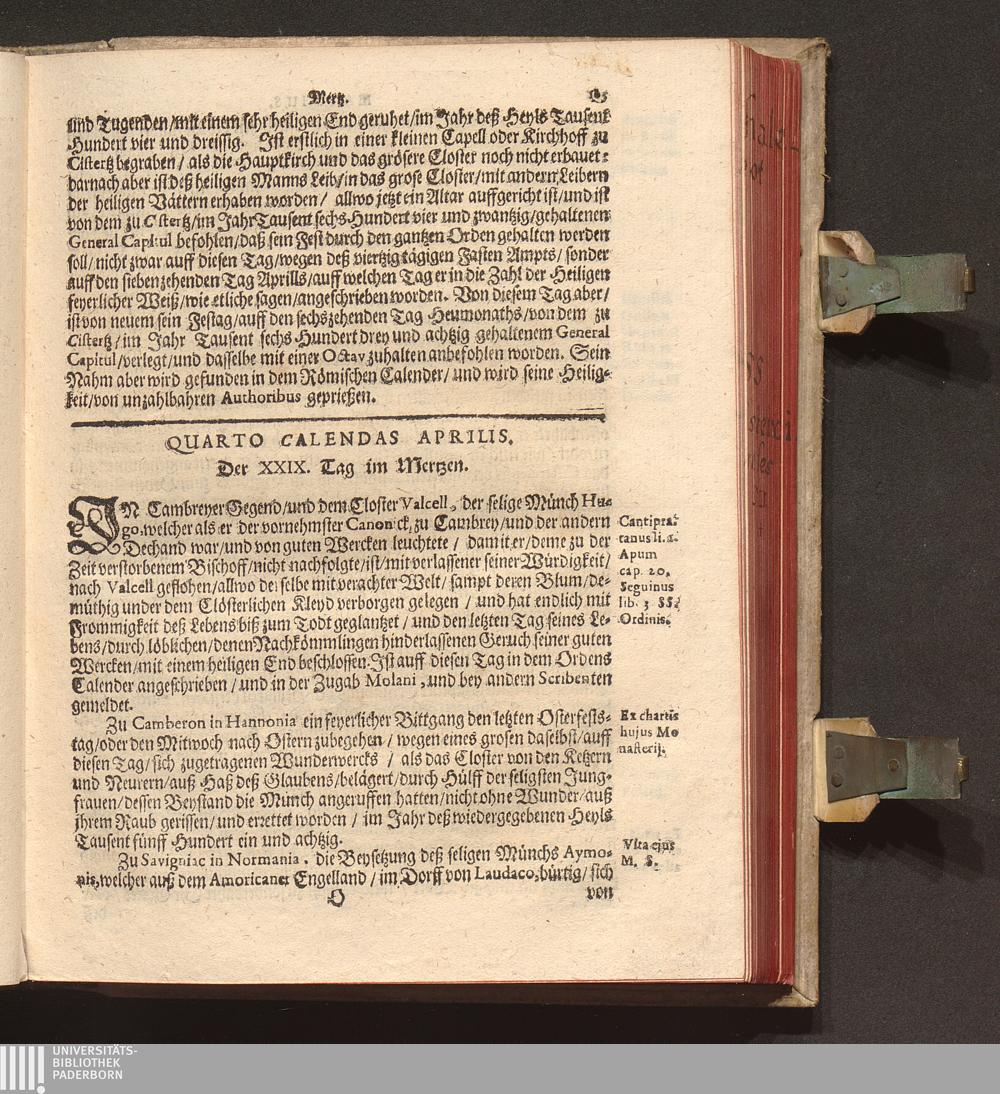 Mertz.
105
und Tugenden/mit einem sehr heiligen End geruhet/im Jahr deß Heyls Tausent
Hundert vier und dreissig. Ist erstlich in einer kleinen Capell oder Kirchhoff zu
Cistertz begraben / als die Hauptkirch und das grösere Closter noch nicht erbauet:
darnach aber ist deß heiligen Manns Leib/in das grose Closter/mit andern Leibern
der heiligen Vättern erhaben worden / allwo jetzt ein Altar auffgericht ist/und ist
von dem zu Cistertz/im Jahr Tausent sechs Hundert vier und zwantzig/gehaltenen
General Capitul befohlen/daß sein Fest durch den gantzen Orden gehalten werden
soll/nicht zwar auff diesen Tag/wegen deß viertzig tägigen Fasten Ampts/sonder
auff den siebenzehenden Tag Aprills/auff welchen Tag er in die Zahl der Heiligen
feyerlicher Weiß/wie etliche sagen/angeschrieben worden. Von diesem Tag aber/
ist von neuem sein Festag/auff den sechszehenden Tag Heumonaths/von dem zu
Cistertz/im Jahr Tausent sechs Hundert drey und achtzig gehaltenem General
Capitul/verlegt/und dasselbe mit einer Octav zuhalten anbefohlen worden. Sein
Nahm aber wird gefunden in dem Römischen Calender/und wird seine Heilig-
keit/von unzahlbahren Authoribus geprießen.
QUARTO CALENDAS APRILIS.
Der XXIX. Tag im Mertzen.
IN Cambreyer Gegend/und dem Closter Valcell, der selige Münch Hu-
go, welcher als er der vornehmster Canonick, zu Cambrey/und der andern
Dechand war/und von guten Wercken leuchtete / damit er/deme zu der
Zeit verstorbenem Bischoff/nicht nachfolgte/ist/mit verlassener seiner Würdigkeit/
nach Valcell geflohen/allwo derselbe mit verachter Welt/sampt deren Blum/de-
müthig under dem Clösterlichen Kleyd verborgen gelegen / und hat endlich mit
Frommigkeit deß Lebens biß zum Todt geglantzet / und den letzten Tag seines Le-
bens/durch löblichen/denen Nachkömmlingen hinderlassenen Geruch seiner guten
Wercken/mit einem heiligen End beschlossen. Ist auff diesen Tag in dem Ordens
Calender angeschrieben / und in der Zugab Molani, und bey andern Scribenten
gemeldet.
Cantipra-
tanus li. 2.
Apum
cap. 20.
Seguinus
lib. 3 SS.
Ordinis.
Zu Camberon in Hannonia ein feyerlicher Bittgang den letzten Osterfests-
tag/oder den Mitwoch nach Ostern zubegehen / wegen eines grosen daselbst/auff
diesen Tag/sich zugetragenen Wunderwercks / als das Closter von den Ketzern
und Neurern/auß Haß deß Glaubens/belägert/durch Hülff der seligsten Jung-
frauen/dessen Beystand die Münch angeruffen hatten/nicht ohne Wunder/auß
jhrem Raub gerissen/und errettet worden / im Jahr deß wiedergegebenen Heyls
Tausent fünff Hundert ein und achtzig.
Ex chartis
hujus Mo
nasterij.
Zu Savigniac in Normania, die Beysetzung deß seligen Münchs Aymo-
nis, welcher auß dem Amoricaner Engelland / im Dorff von Laudaco, bürtig/sich
Vita ejus
M. S.
O
von
UNIVERSITÄTS-
BIBLIOTHEK
PADERBORN